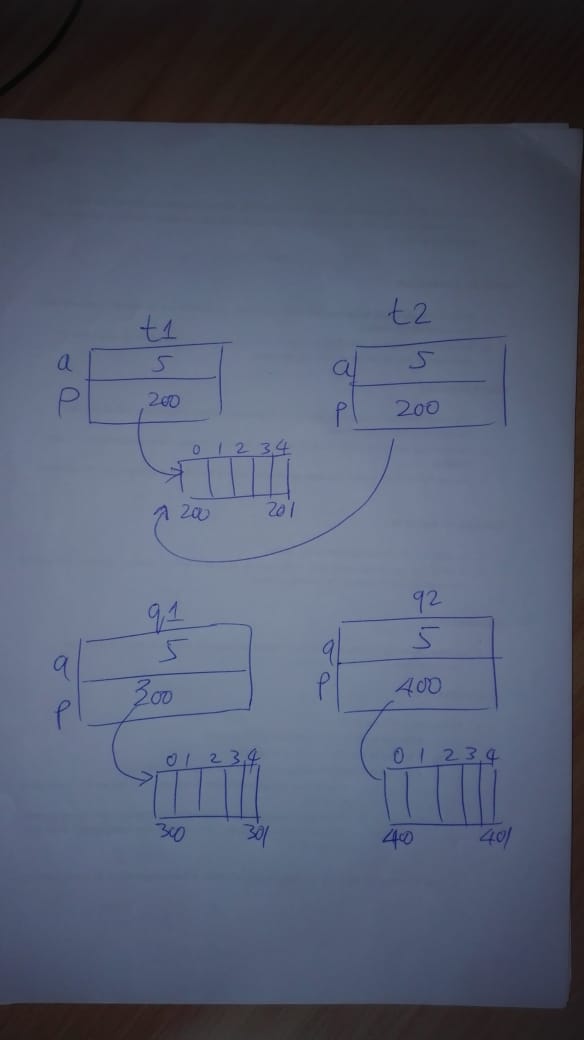 t1
a 5
p 200
0 1 2 3 4
200 201
t2
a 5
p 200
q1
a 5
p 300
0 1 2 3 4
300 301
q2
a 5
p 400
0 1 2 3 4
400 401